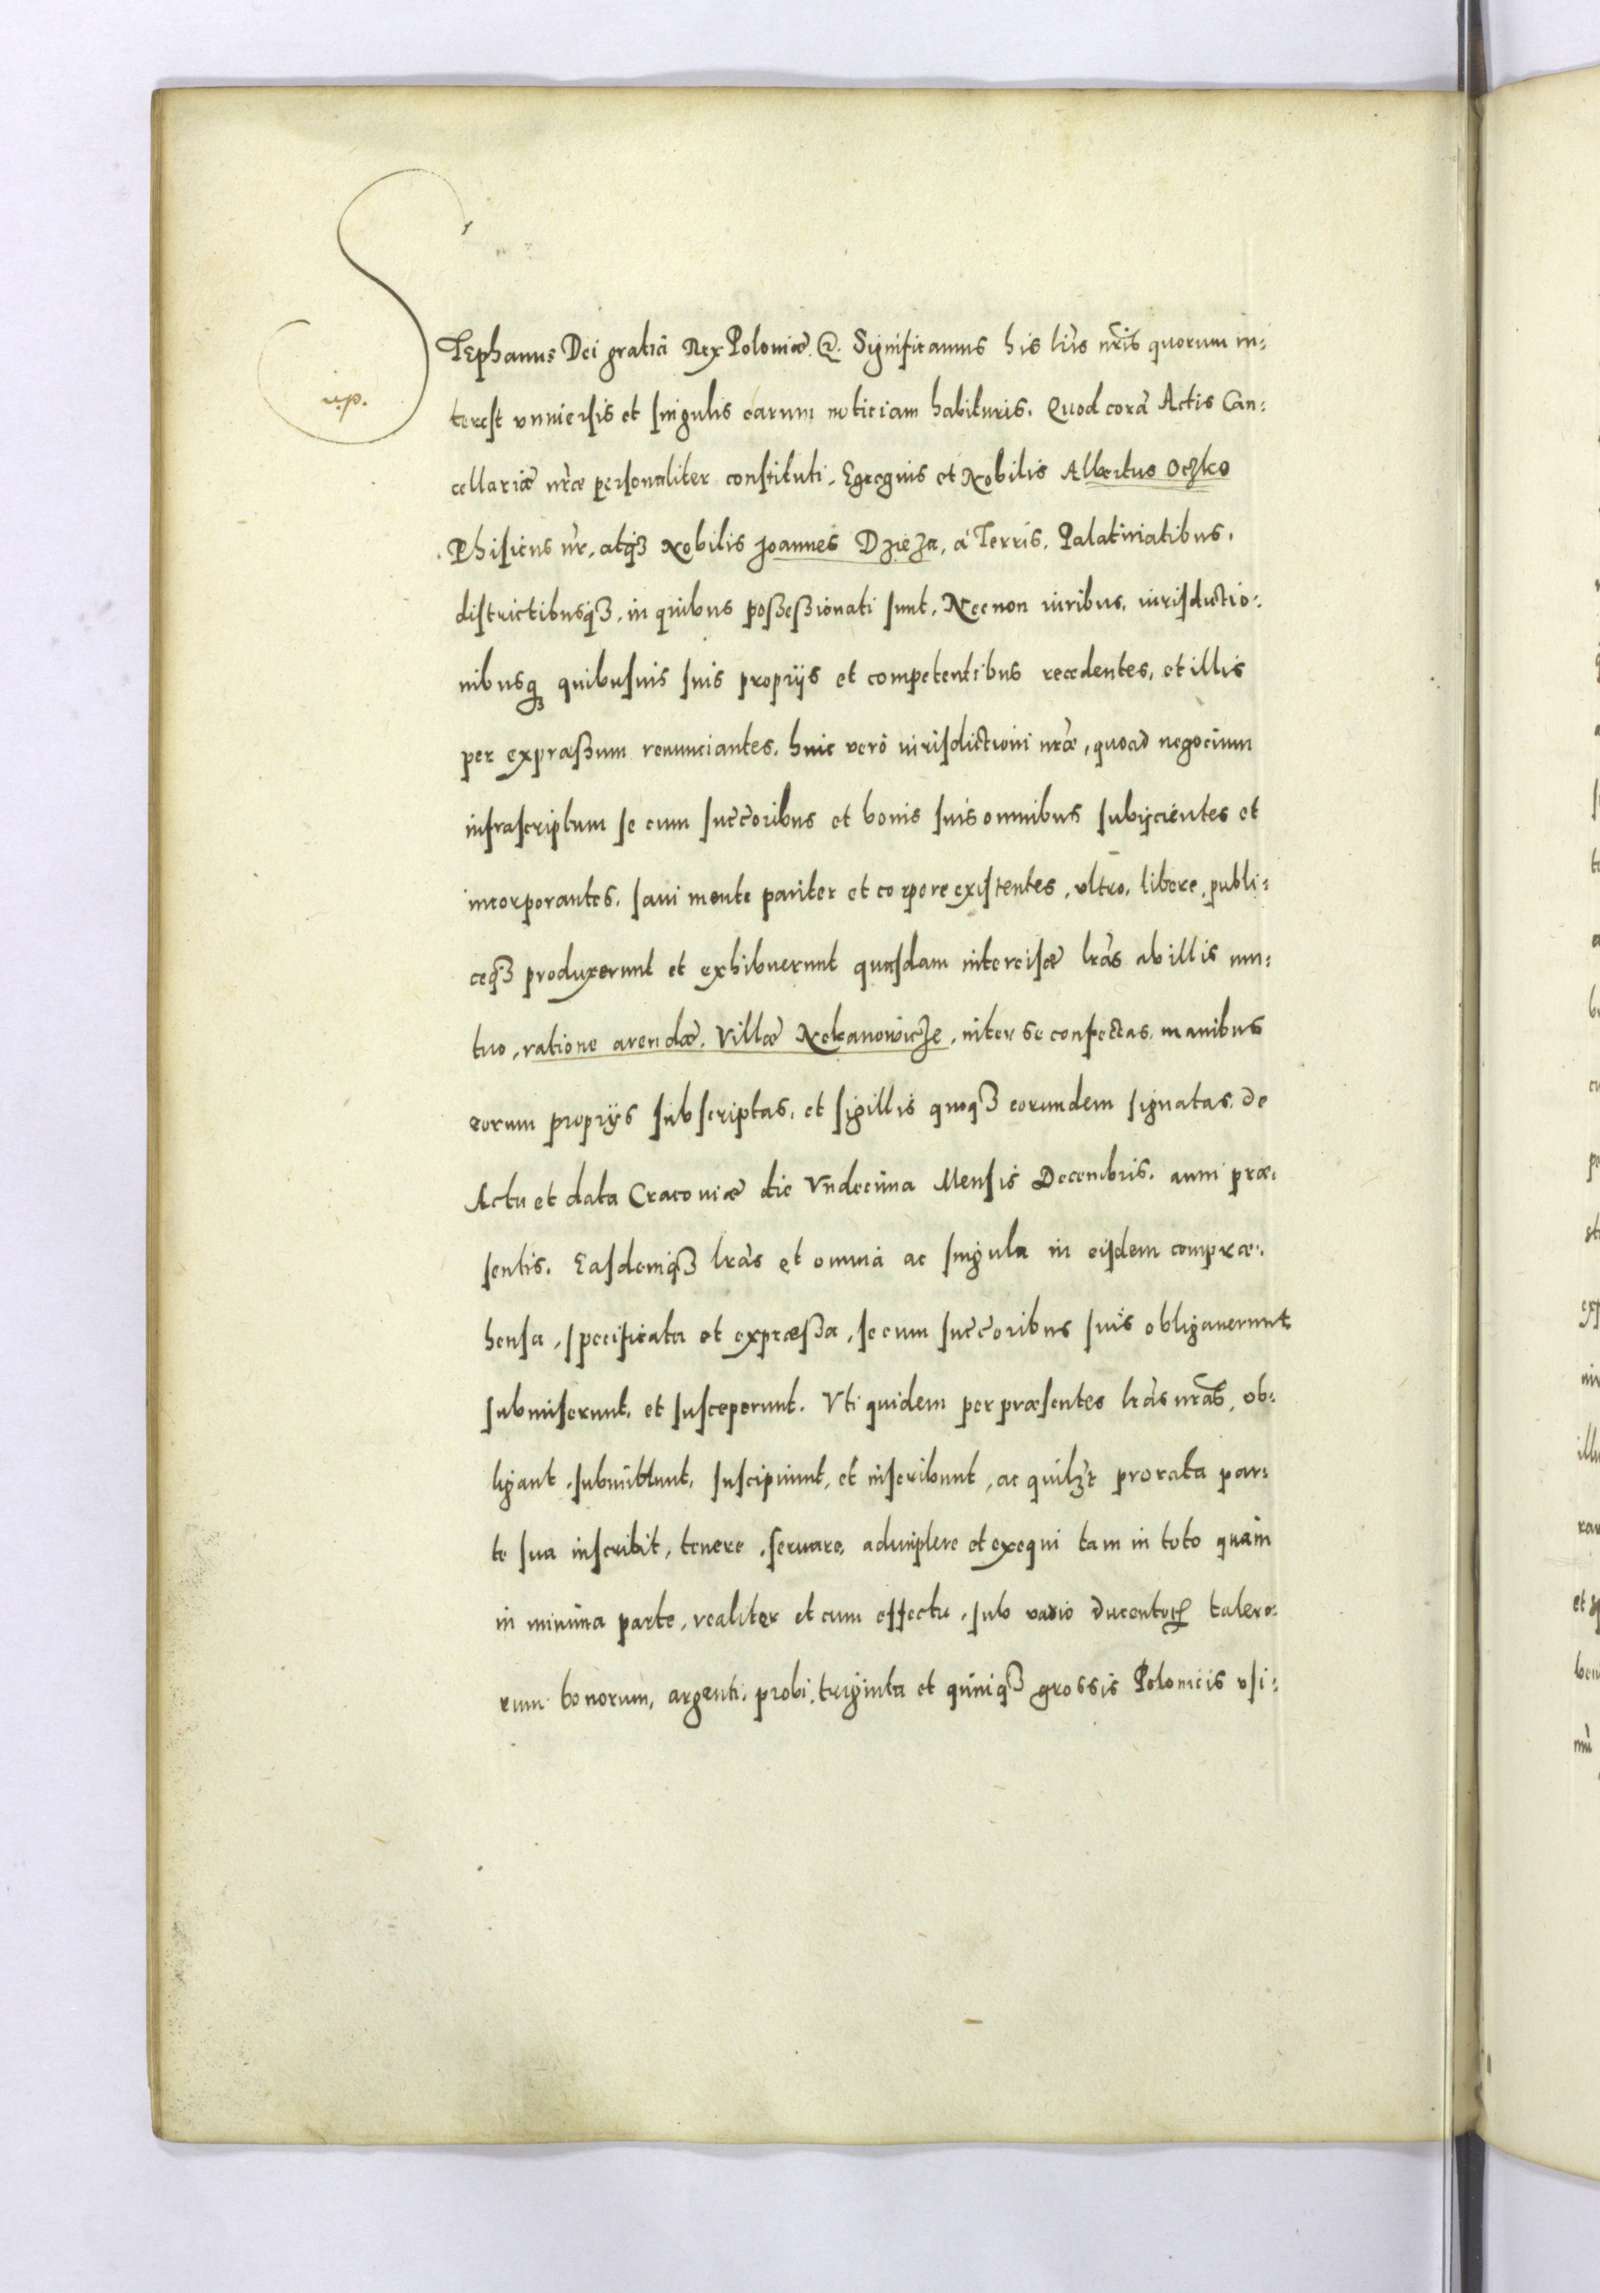 STEphanus Dei gratiâ Rex Poloniæ. @. Significamus his lrīs nrīs quorum in:
terest vniuersis et singulis earum noticiam habituris. Quod corã Actis Can:
cellariæ nræ personaliter constituti, Egregius et Nobilis Albertus Oczko
Phisicus nr̃, atqꝫ Nobilis Joannes Dzieza, á Terris, Palatinatibus,
districtibusqꝫ, in quibus poßeßionati sunt, Necnon iuribus, iurisdictio:
nibusqꝫ quibusuis suis proprijs et competentibus recedentes, et illis
per expræßum renunciantes, huic verò iurisdictioni nræ, quoad negocium
infrascriptum se cum succ̃oribus et bonis suis omnibus subijcientes et
incorporantes, sani mente pariter et corpore existentes, vltro, libere, publi:
ceqꝫ produxerunt et exhibuerunt quasdam intercisæ lrãs ab illis mu:
tuo, ratione arendæ, Villæ Nekanowicze, inter se confectas, manibus
eorum proprijs subscriptas, et sigillis quoqꝫ eorundem signatas, de
Actu et data Cracouiæ die Vndecima Mensis Decembris, anni præ:
sentis. Easdemqꝫ lrãs et omnia ac singula in eisdem compræ:
hensa, specificata et expræßa, se cum succ̃oribus suis obligauerunt
submiserunt, et susceperunt. Vti quidem per præsentes lrãs nrãs, ob:
ligant, submittunt, suscipiunt, et inscribunt, ac quilꝫt pro rata par:
te sua inscribit, tenere, seruare, adimplere et exequi tam in toto quàm
in minima parte, realiter et cum effectu, sub vadio ducentoꝝ talero:
rum bonorum, argenti, probi, triginta et quinqꝫ grossis Polonicis vsi: